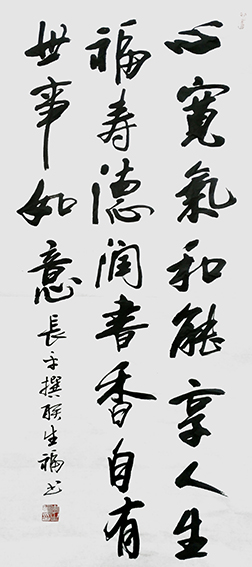 心寬氣和能享人生
福寿德润書香自有
世事如意
長平撰联生福书